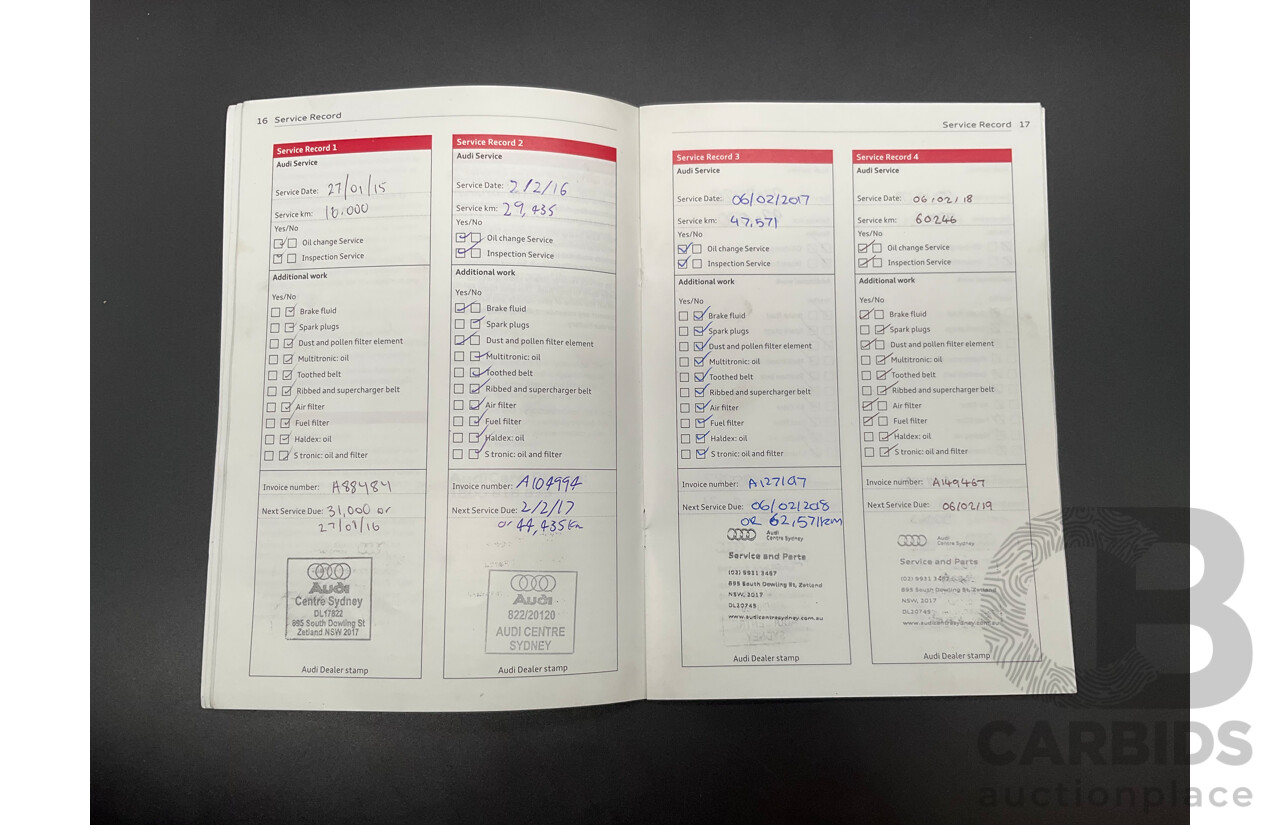 16 Service Record
Service Record 1
Audi Service
Service Date: 27/01/15
Service km: 18.000
Yes/No
Oil change Service
Inspection Service
Additional work
Yes/No
Brake fluid
Spark plugs
Dust and pollen filter element
Multitronic: oil
Toothed belt
Ribbed and supercharger belt
Air filter
Fuel filter
Haldex: oil
S tronic: oil and filter
Invoice number: A88484
Next Service Due: 31,000 or
27/01/16
Audi
Centre Sydney
DL17822
895 South Dowling St
Zetland NSW 2017
Audi Dealer stamp
Service Record 2
Audi Service
Service Date: 2/2/16
Service km: 29,435
Yes/No
Oil change Service
Inspection Service
Additional work
Yes/No
Brake fluid
Spark plugs
Dust and pollen filter element
Multitronic: oil
Toothed belt
Ribbed and supercharger belt
Air filter
Fuel filter
Haldex: oil
S tronic: oil and filter
Invoice number: A104994
Next Service Due: 2/2/17
or 44,435km
Audi
822/20120
AUDI CENTRE
SYDNEY
Audi Dealer stamp
Service Record 17
Service Record 3
Audi Service
Service Date: 06/02/2017
Service km: 47,571
Yes/No
Oil change Service
Inspection Service
Additional work
Yes/No
Brake fluid
Spark plugs
Dust and pollen filter element
Multitronic: oil
Toothed belt
Ribbed and supercharger belt
Air filter
Fuel filter
Haldex: oil
S tronic: oil and filter
Invoice number: A127197
Next Service Due: 06/02/2018
OR 62,571km
Audi
Centre Sydney
Service and Parts
(02) 9931 3487
895 South Dowling St, Zetland
NSW, 2017
DL20745
www.audicentresydney.com.au
Audi Dealer stamp
Service Record 4
Audi Service
Service Date: 06/02/18
Service km: 60246
Yes/No
Oil change Service
Inspection Service
Additional work
Yes/No
Brake fluid
Spark plugs
Dust and pollen filter element
Multitronic: oil
Toothed belt
Ribbed and supercharger belt
Air filter
Fuel filter
Haldex: oil
S tronic: oil and filter
Invoice number: A149467
Next Service Due: 06/02/19
Audi
Centre Sydney
Service and Parts
(02) 9931 3487
895 South Dowling St, Zetland
NSW, 2017
DL20745
www.audicentresydney.com.au
Audi Dealer stamp
CB
CARBIDS
auctionplace